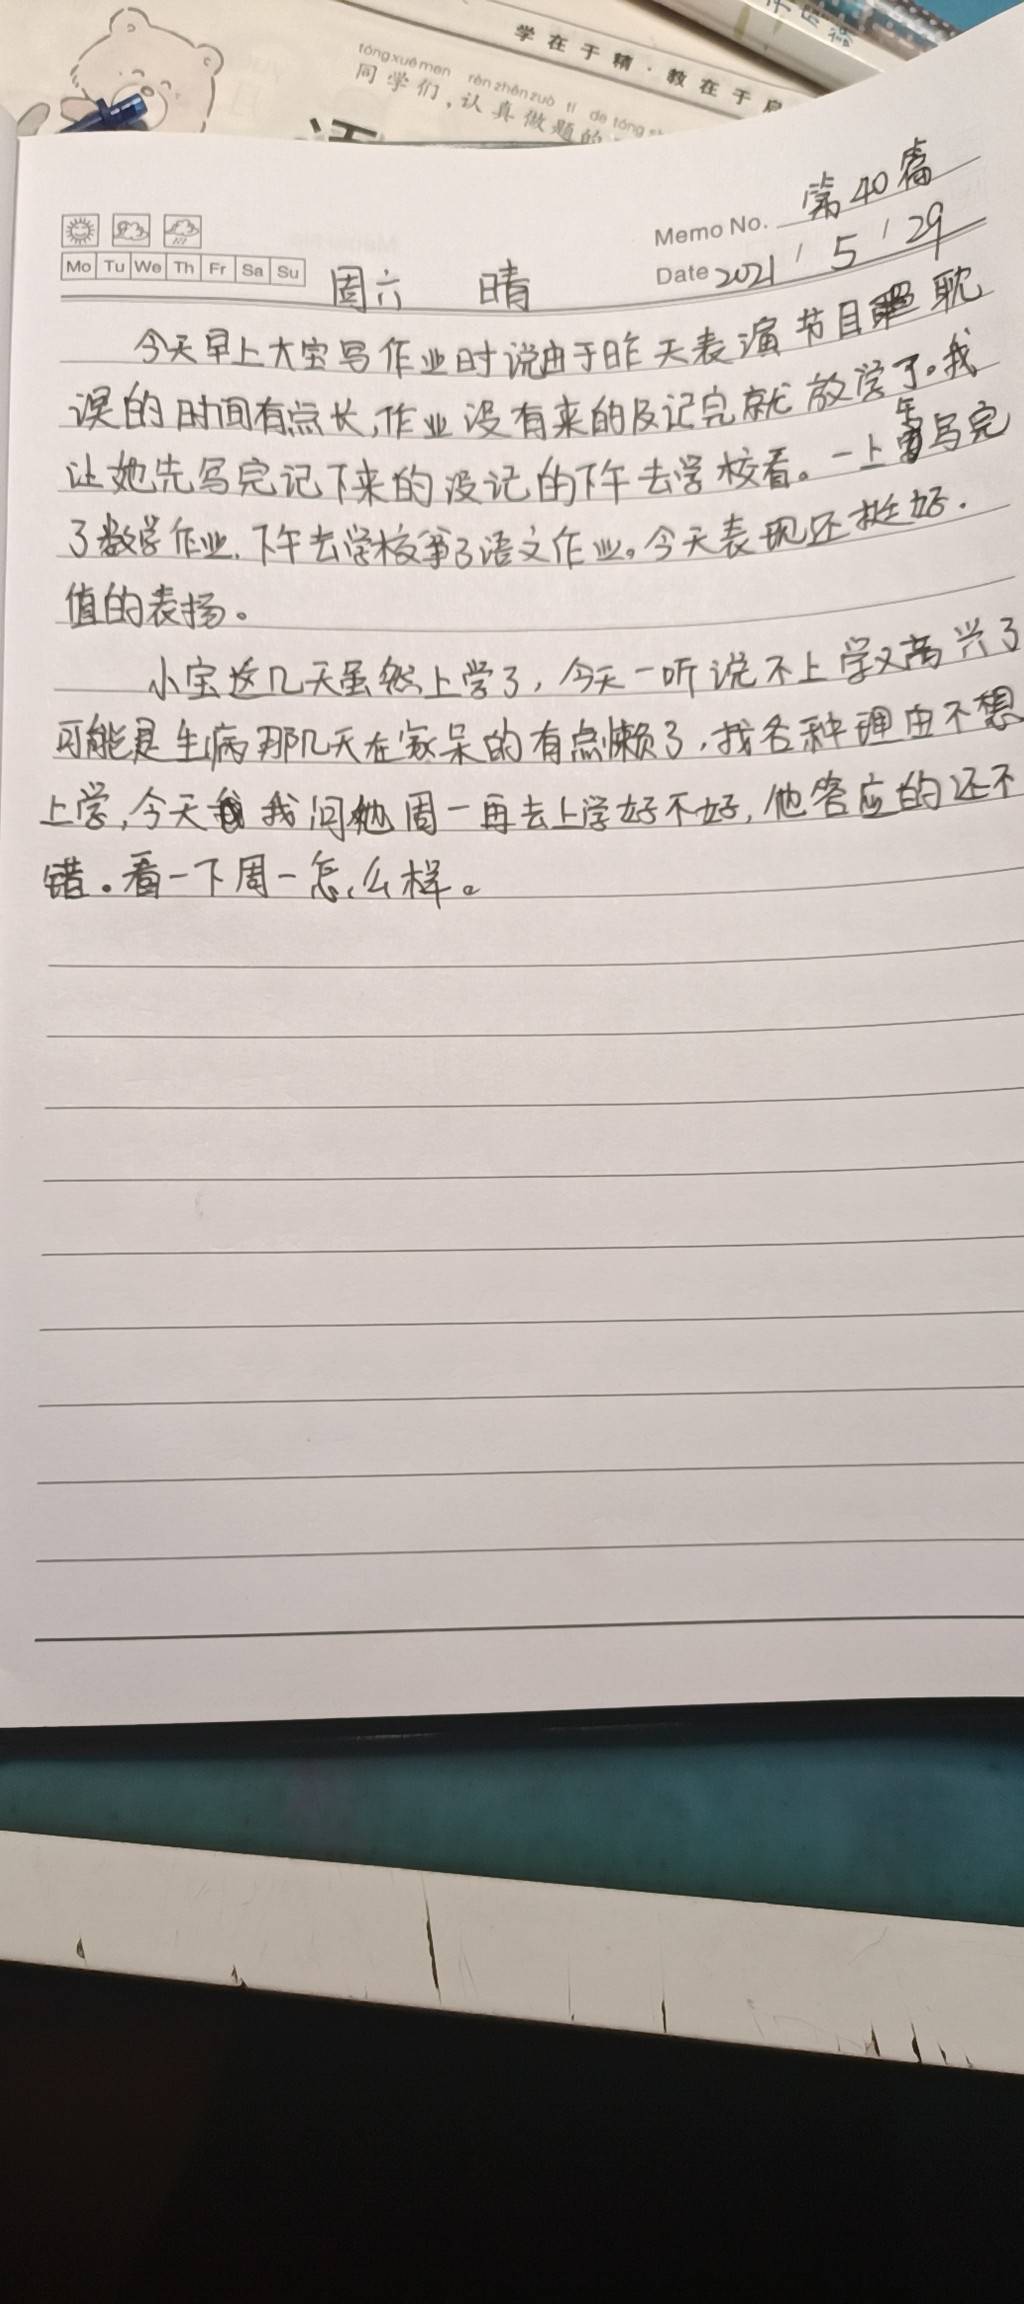 学在于精·教在于
tóngxuémen rènzhēnzuò tí de tóng
同学们,认真做题的
第40篇
Memo No.
Mo Tu We Th Fr Sa Su
Date 2021/5/29
周六 晴
今天早上大宝写作业时说由于昨天表演节目耽
误的时间有点长,作业没有来的及记完就放学了。我
让她先写完记下来的没记的下午去学校看。一上午写完
了数学作业.下午去学校写了语文作业。今天表现还挺好.
值的表扬。
小宝这几天虽然上学了,今天一听说不上学又高兴了
可能是生病那几天在家呆的有点懒了,找各种理由不想
上学,今天我问他周一再去上学好不好,他答应的还不
错。看一下周一怎么样。